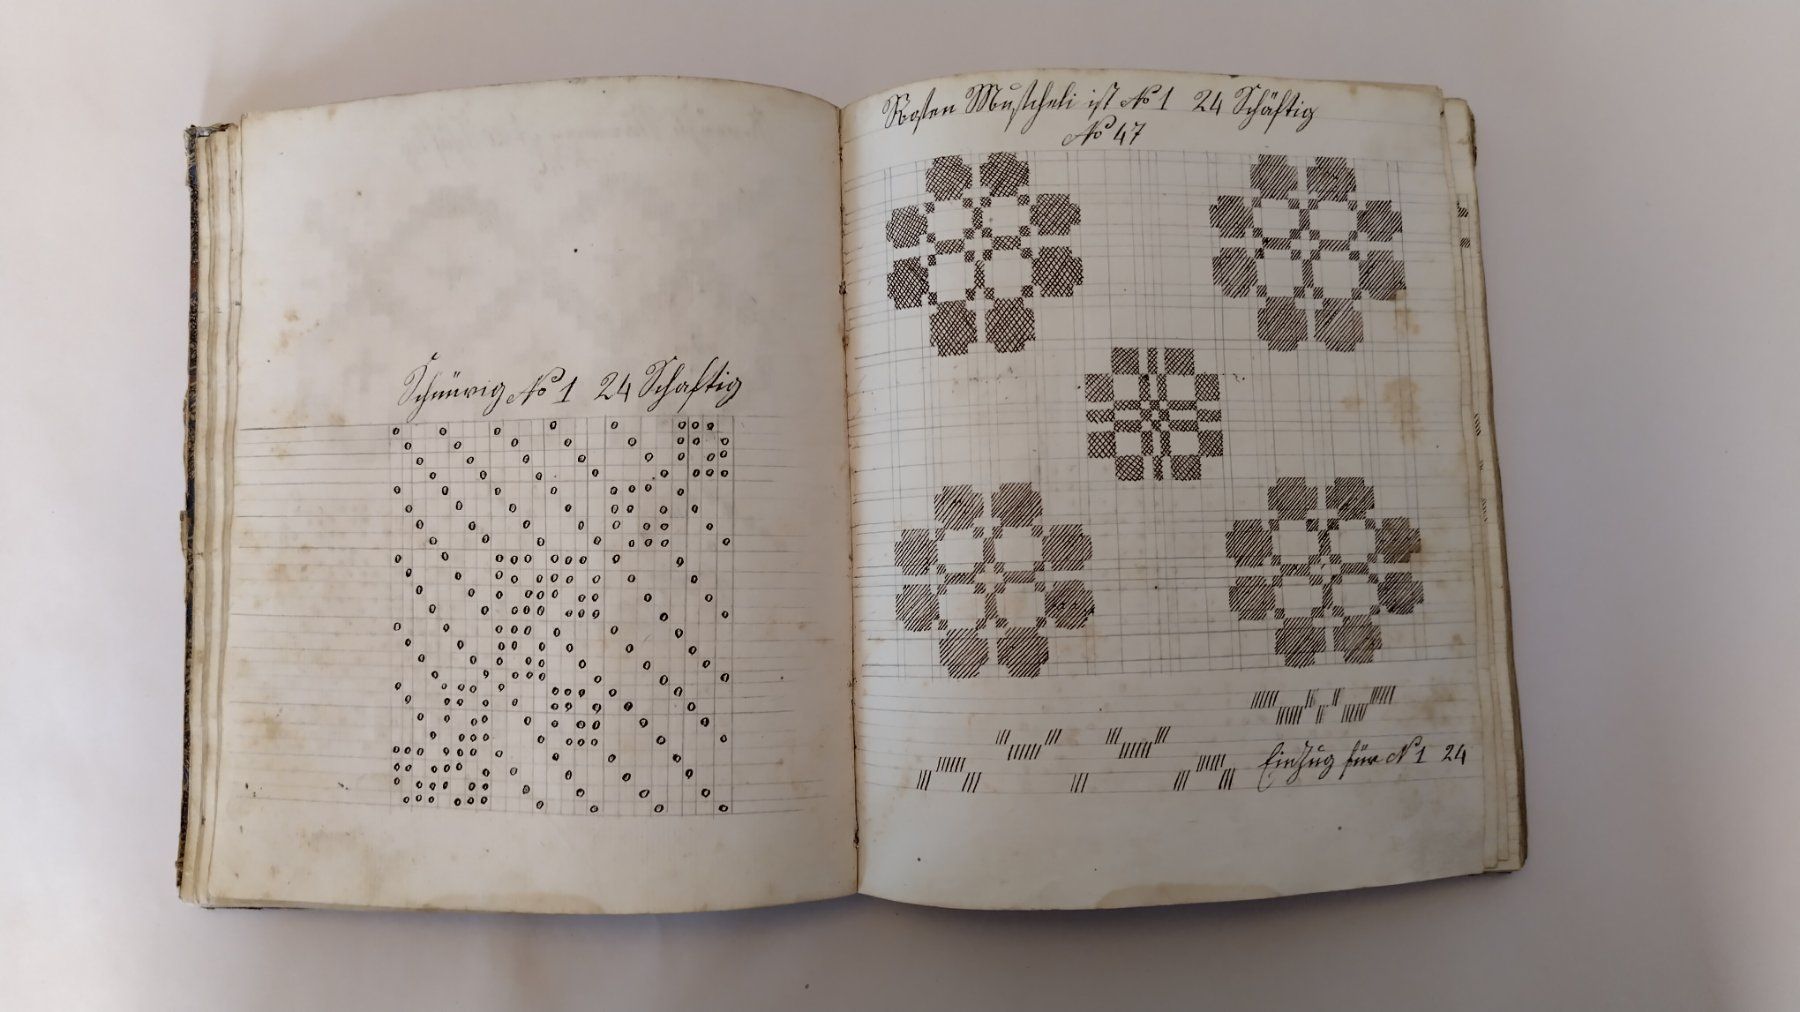 Schnürig No 1 24 Schaftig
Rosen Muscheli ist No 1 24 Schäftig
No 47
Einzug für No 1 24